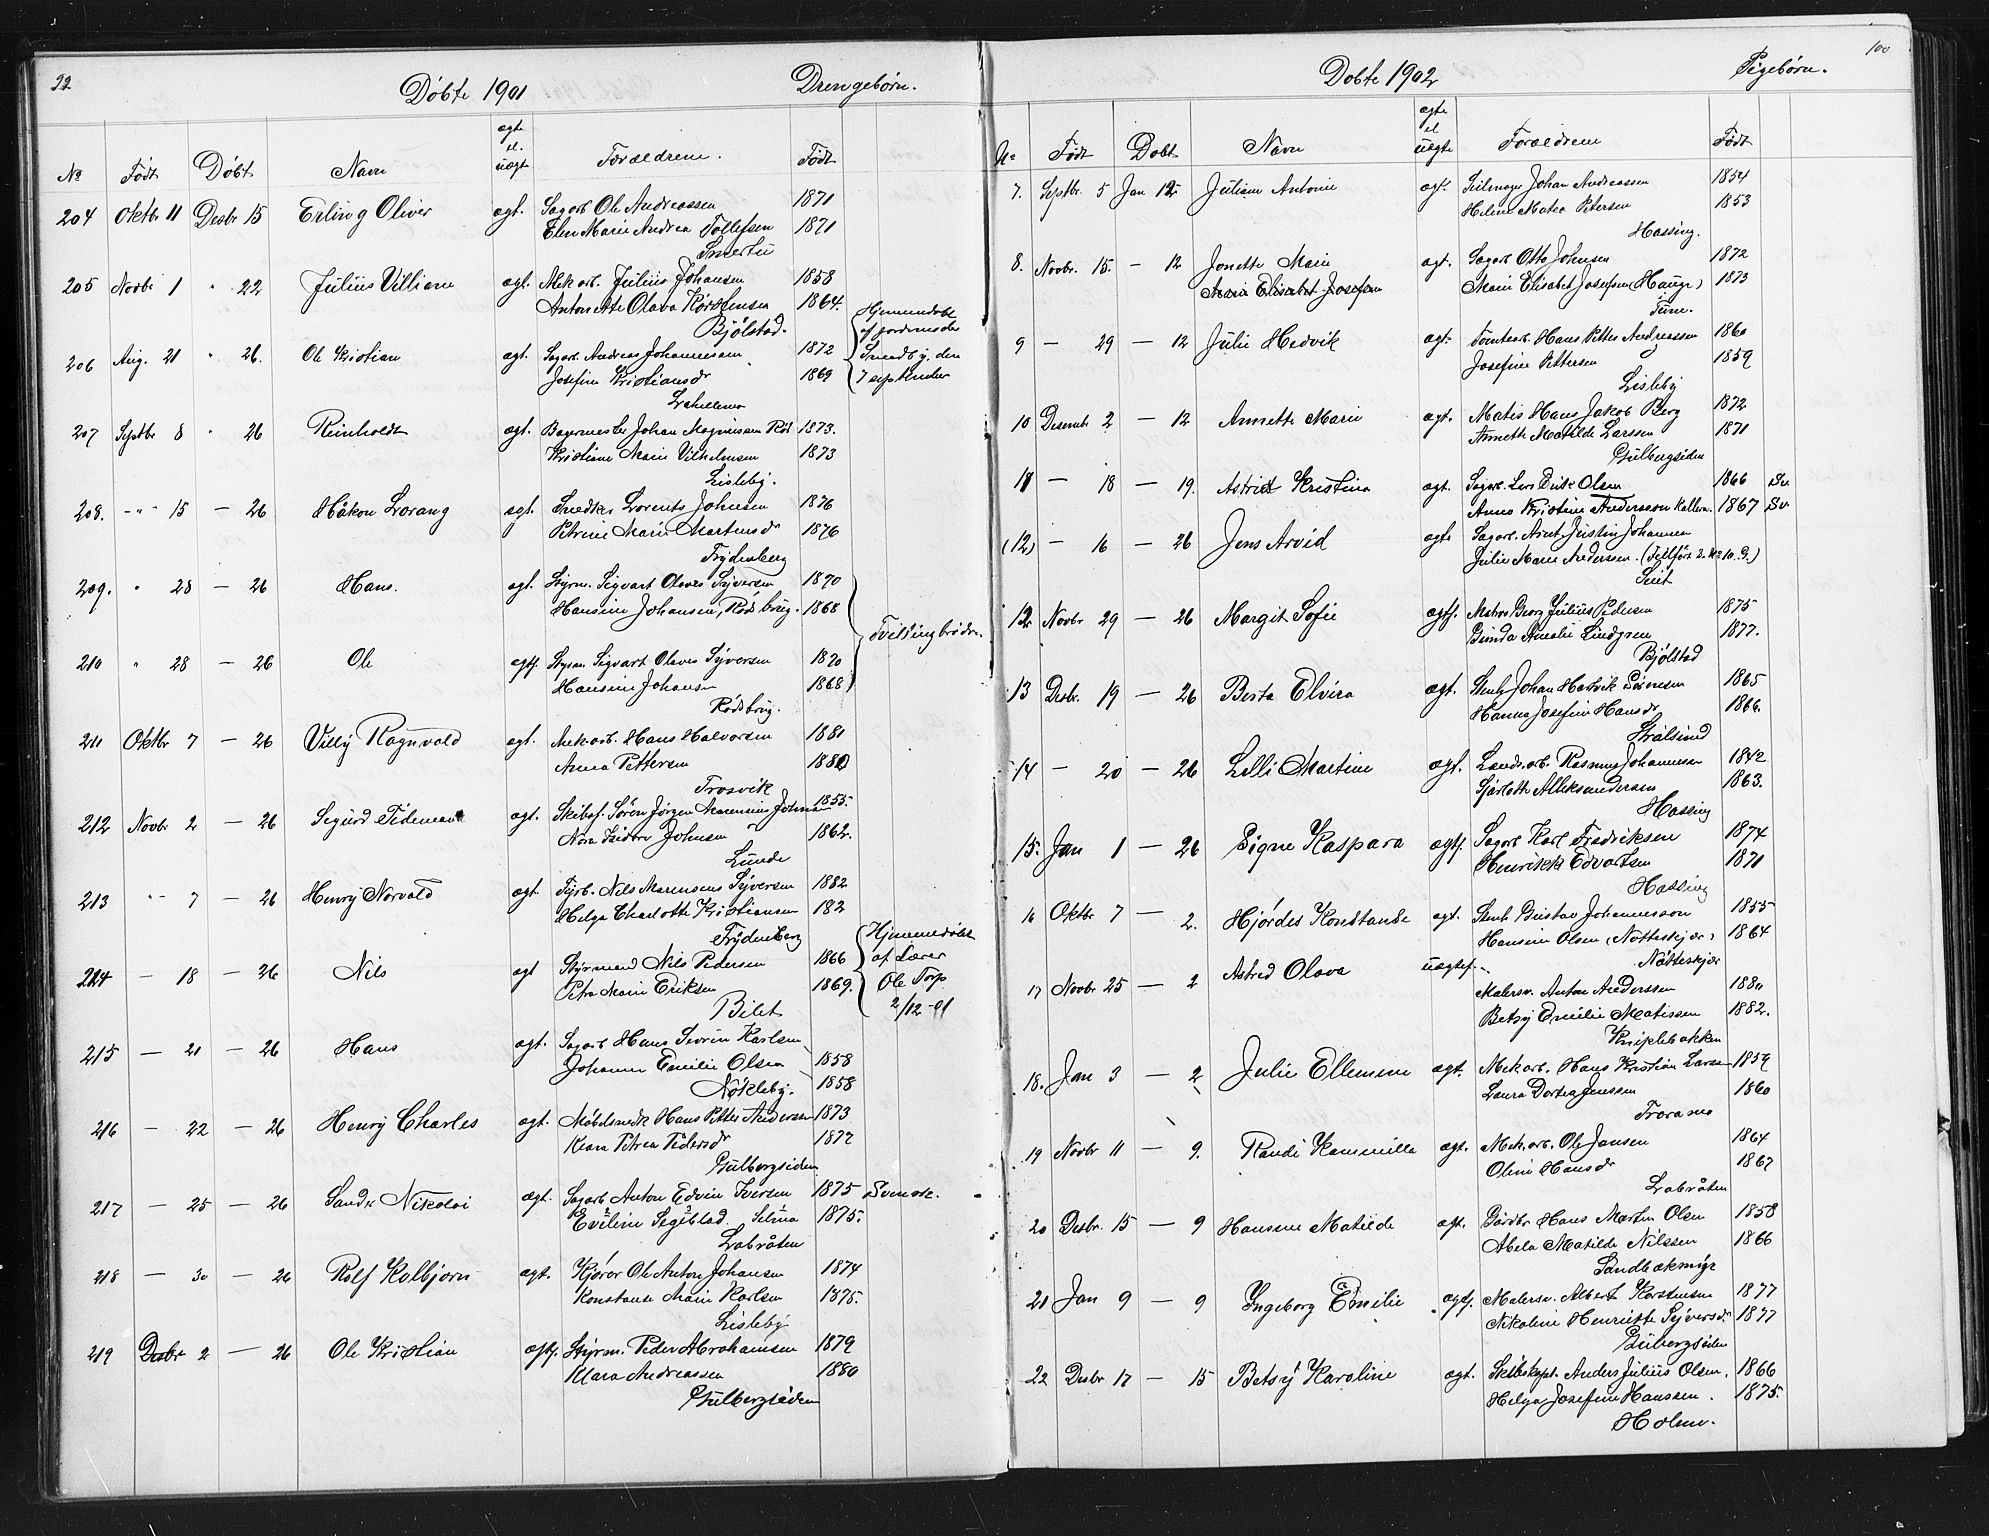 22
Døbte 1901
Drengebørn.
№ Født Døbt Navn ægte el. uægt. Forældrene. Født
204 Oktbr 11 Desbr 15 Erling Oliver ægt. Sagarb. Ole Andreassen 1871
Elen Marie Andrea Tollefsen 1871
Smertu
205 Novbr 1 " 22 Julius Villiam ægt. Mek.arb. Julius Johansen 1858
Antonette Olava Korstensen 1864.
Bjølstad.
206 Aug. 21 " 26. Ole Kristian ægt. Sagarb. Andreas Johannesen 1872
Josefine Kristiansdr 1869
Hjemmedøbt
af jordmoder
Smedby, den
7 september
207 Septbr 8 " 26 Reinholdt ægt. Bagermester Johan Magnussen Rød 1873.
Kristiane Marie Vilhelmsen 1873
Lisleby.
208. -"- 15 — 26 Håkon Lorang ægt. Snedker Lorents Johnsen 1876
Petrine Marie Martinsdr 1876
Frydenberg
209. " 28 — 26 Hans. ægt. Styrm. Sigvart Olaves Syversen 1870
Hansine Johansen, Rødsbrug. 1868
Tvillingbrødre.
210 " 28 — 26 Ole ægtf. Styrm. Sigvart Olaves Syversen 1870
Hansine Johansen 1868
Rødsbrug.
211 Oktbr 7 — 26 Villy Ragnvald ægt. Mek.arb. Hans Halvorsen 1881
Anna Pettersen 1880
Trosvik
212 Novbr 2 — 26 Sigurd Tidemand ægt. Skibsf. Søren Jørgen Marensius Johnsen 1855.
Nora Isidora Johnsen 1862.
Lunde
213 -"- 7 — 26 Henry Norvald ægt. Fyrb. Nils Marensens Syversen 1882
Helga Charlotte Kristiansen 182
Frydenberg
214 — 18 — 26 Nils ægt Styrmand Nils Pedersen 1866
Petra Marie Eriksen 1869.
Bilet
Hjemmedøbt
af Lærer
Ole Torp
2/12-01
215 — 21 — 26 Hans ægt. Sagarb. Hans Severin Karlsen
Johanne Emilie Olsen 1858
Nøkleby. 1858
216 — 22 — 26 Henry Charles ægt. Møbelsnedk. Hans Petter Andersen 1873
Klara Petrea Pedersdr 1872
Gulbergsiden
217 — 25 — 26 Sander Nikolai ægt. Sagarb. Anton Edvin Iversen 1875 Svenske.
Eveline Segeblad. Selma 1875.
Labråten
218 — 30 — 26 Rolf Kolbjørn ægt. Kjører Ole Anton Johansen 1874
Konstance Marie Karlsen 1875.
Lisleby
219 Desbr 2 — 26 Ole Kristian ægtf. Styrm. Peder Abrahamsen 1879
Klara Andreassen 1880
Gulbergsiden
100
Døbte 1902
Pigebørn.
No Født Døbt Navn ægte el uægte Forældrene Født
7. Septbr. 5 Jan 12 Juliane Antonie ægt. Seilmager Johan Andreassen 1854
Helene Matea Petersen 1853
Hassing.
8. Novbr. 15. — 12 Jonette Marie ægt. Sagarb Otto Johnsen 1872
Marie Elisabet Josefsen Marie Elisabet Josefsen (Hauge) 1873
Tune.
9 — 29 — 12 Julie Hedvik ægt. Tomtearb. Hans Petter Andreassen 1860
Josefine Pettersen 1859
Lisleby
10 Desembr 2 — 12 Annette Marie ægt. Matis Hans Jakob Berg 1872
Annette Matilde Larssen 1871
Gulbergsiden
11 — 18 — 19. Astrid Kristina ægt. Sagarb. Lars Erik Olsen 1866 Sv.
Anna Kristine Andersson 1867 Sv.
(12) — 16 — 26 Jens Arvid ægte Sagarb. Arnt Justin Johannesen
Julie Marie Anderssen.
12 Novbr 29 — 26 Margit Sofie ægtf. Matros Georg Julius Pedersen 1875
Gunda Amalie Lindgren 1877.
Bjølstad
13 Desbr. 19 — 26 Berta Elvira ægt. Stenh. Johan Hartvik Sørensen 1865
Hanna Josefine Hansdr 1866.
Strålsund
14 — 20 — 26 Lilli Martine ægt. Landb.arb. Rasmus Johannesen 1842
Sjarlotte Alleksandersen 1863.
Hassing
15. Jan 1 — 26 Signe Kaspara ægtf. Sagarb. Karl Fredriksen 1874
Henrikke Edvartsen 1871
Hassing
16 Oktbr 7 — 2. Hjørdes Konstanse ægt. Stenh. Gustav Johannesson 1855
Hansine Olsen (Nøtteskjær) 1864
Nøtteskjær
17 Novbr 25 — 2 Astred Olava uægtef. Malersv. Anton Anderssen 1880
Betsy Emilie Matissen 1882.
Kniplebakken
18. Jan 3 — 2 Julie Ellemine ægt. Mek.arb. Hans Kristian Larsen 1859
Laura Dortea Jenssen 1860
Traramo
19 Novbr 11 — 9. Randi Kammilla ægt. Mek.arb. Ole Jansen 1864
Oline Hansdr 1867
Labråten
20 Desbr. 15 — 9 Hansine Matilde ægt. Gårdbr. Hans Martin Olsen 1858
Abela Matilde Nilssen 1866
Sandbakmyr
21 Jan 9 — 9 Ingeborg Emilie ægtf. Malersv. Albert Korstensen 1877
Nikoline Henriette Syversdr 1877
Gulbergsiden
22 Desbr 17 — 15 Betsy Karoline ægt. Skibskapt. Anders Julius Olsen. 1866
Helga Josefine Hanssen. 1875.
Holmen.